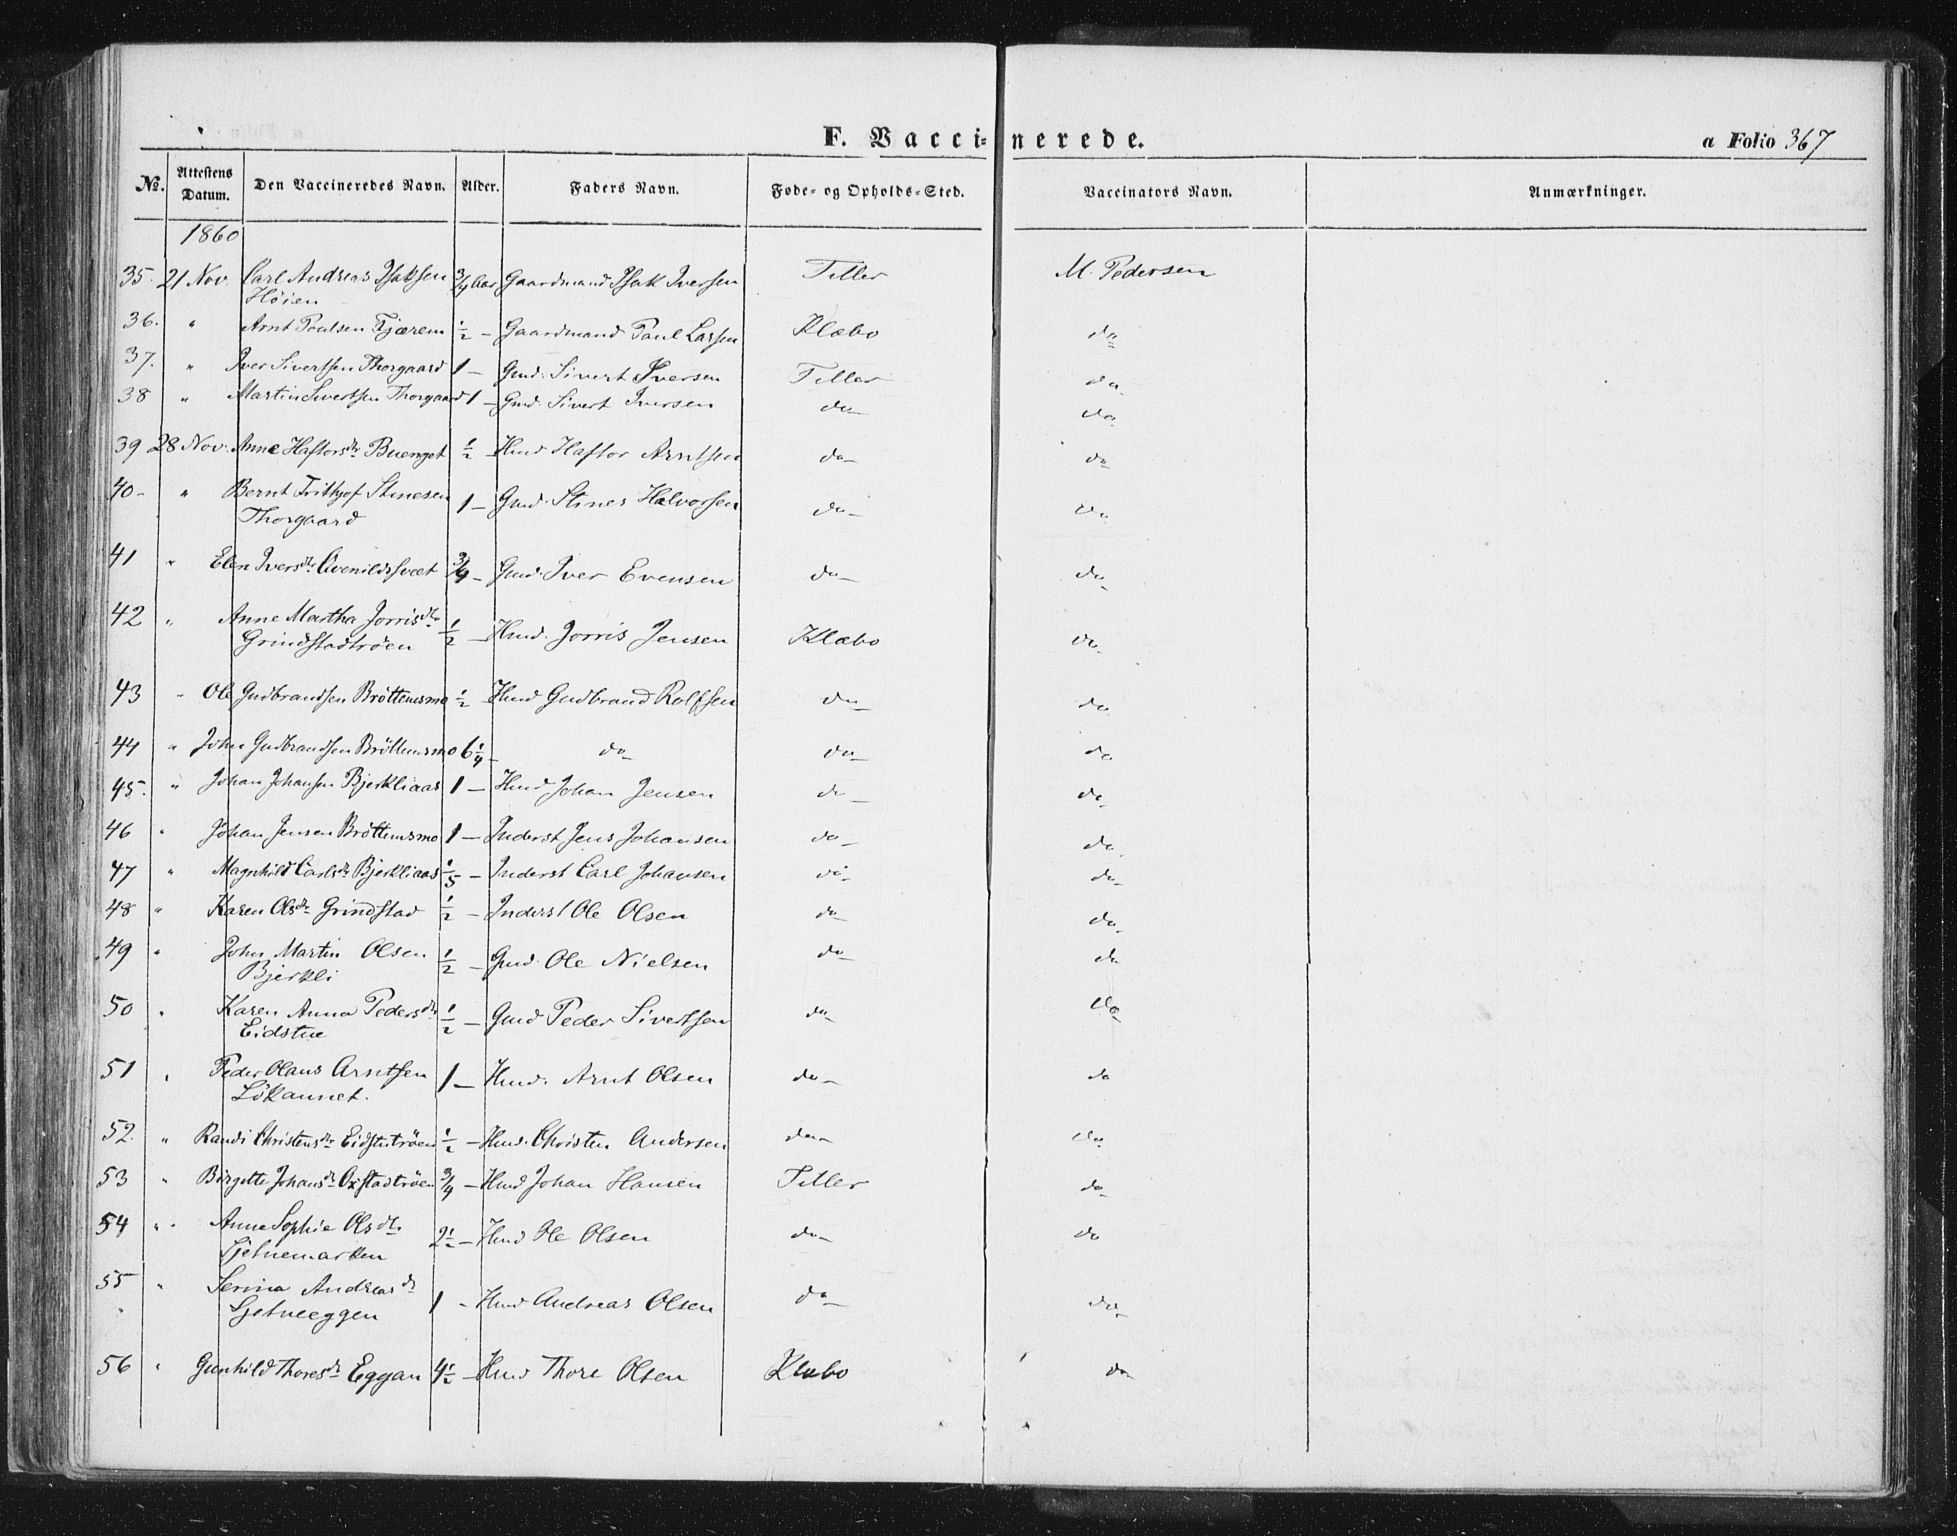 F. Vaccinerede.
a Folio 367
No. Attestens Datum. Den Vaccineredes Navn. Alder. Faders Navn. Føde- og Opholds-Sted. Vaccinators Navn. Anmærkninger.
1860
35. 21 Nov. Carl Andreas Isaksen 3/4 Aar Gaardmand Isak Iversen Tiller M. Pedersen
Høien
36. " Arnt Poulsen Tjærem 1/2 - Gaardmand Paul Larsen Klæbo do
37. " Iver Sivertsen Thorgaard 1 - Gmd. Sivert Iversen Tiller do
38 " Martin Sivertsen Thorgaard 1 - Gmd. Sivert Iversen do do
39 28 Nov. Anne Haftorsdr Buenget 1/2 - Hmd Haftor Arntsen do do
40 " Bernt Frithjof Stinesen 1 - Gmd. Stines Halvorsen do do
Thorgaard
41 " Elen Iversdr 3/4 - Gmd. Iver Evensen do do
42 " Anne Martha Jorrisdr 1/2 - Hmd. Jorris Jensen Klæbo do
Grindstadtrøen
43 " Ole Gudbrandsen Bröttemsmo 1/2 - Hmd Gudbrand Rolfsen do do
44 " John Gudbrandsen Bröttemsmo 6 1/4 - do do do
45. " Johan Johansen Bjerkliaas 1 - Hmd Johan Jensen do do
46 " Johan Jensen Bröttemsmo 1 - Inderst Jens Johansen do do
47 " Magnhild Carlsdr Bjerkliaas 1/5 - Inderst Carl Johansen do do
48 " Karen Olsdr Grindstad 1/2 - Inderst Ole Olsen do do
49 " John Martin Olsen 1/2 - Gmd. Ole Nielsen do do
Bjerkli
50 " Karen Anna Pedersdr 1/2 - Gmd Peder Sivertsen do do
Eidstue
51 " Peder Olaus Arntsen 1 - Hmd. Arnt Olsen do do
Lökaunet.
52. " Randi Christensdr Eidstutröen 1/2 - Hmd. Christen Andersen do do
53 " Birgitte Johansdr Oxstadtröen 3/4 - Hmd Johan Hansen Tiller do
54 " Anne Sophie Olsdr 2 1/2 - Hmd Ole Olsen do do
Sjetnemarken
55 " Serina Andreasdr 1 - Hmd Andreas Olsen do do
Sjetneeggen
56 " Gunhild Thoresdr Eggan 4 1/2 - Hmd Thore Olsen Klæbo do